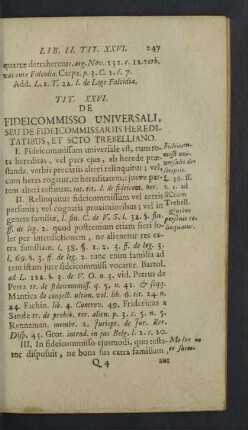 LIB. II. TIT. XXVI. 247
quartæ detraheretur. arg. Nov. 131. c. 12. verb.
vacante Falcidia. Carpz. p. 3. C. 1. d. 7.
Add. L. 1. T. 22. I. de Lege Falcidia.
TIT. XXVI.
DE
FIDEICOMMISSO UNIVERSALI,
SEU DE FIDEICOMMISSARIIS HEREDI-
TATIBUS, ET SCTO TREBELLIANO.
I. Fideicommissum universale est, cum to-
ta hereditas, vel pars ejus, ab herede præ-
standa, verbis precariis alteri relinquitur; vel
cum heres rogatur, ut hereditatem, juæve par-
tem alteri restituat. tot. tit. I. de fideicom. her.
II. Relinquitur fideicommissum vel certis
personis; vel cognatis proximioribus; vel in
genere familiæ, l. fin. C. de V. S. l. 32. §. fin.
ff. de leg. 2. quod postremum etiam fieri so-
let per interdictionem, ne alienetur res ex-
tra familiam. l. 38. §. 1. 2. 3. ff. de leg. 3.
l. 69. §. 3. ff. de leg. 2. tunc enim familia ad
rem istam jure fideicommissi vocatur. Bartol.
ad L. 122. §. 3. de V. O. n. 3. vid. Petrus de
Petra tr. de fideicommiss. q. 5. n. 41. & seqq.
Mantica de conject. ultim. vol. lib. 6. tit. 24. n.
24. Fachin. lib. 4. Controv. 49. Fridericus a
Sande tr. de prohib. rer. alien. p. 3. c. 5. n. 5.
Renneman. membr. 2. Jurispr. de Jur. Rer.
Disp. 43. Grot. introd. in jus Belg. l. 2. c. 20.
III. In fideicommisso ejusmodi, quo testa-
tor disposuit, ne bona sua extra familiam,
Q 4 aut
Fideicom-
missi uni-
versalis des-
criptio.
L. 36. ff.
1. ad
SCtum
Trebell.
Quibus
personis re-
linquatur.